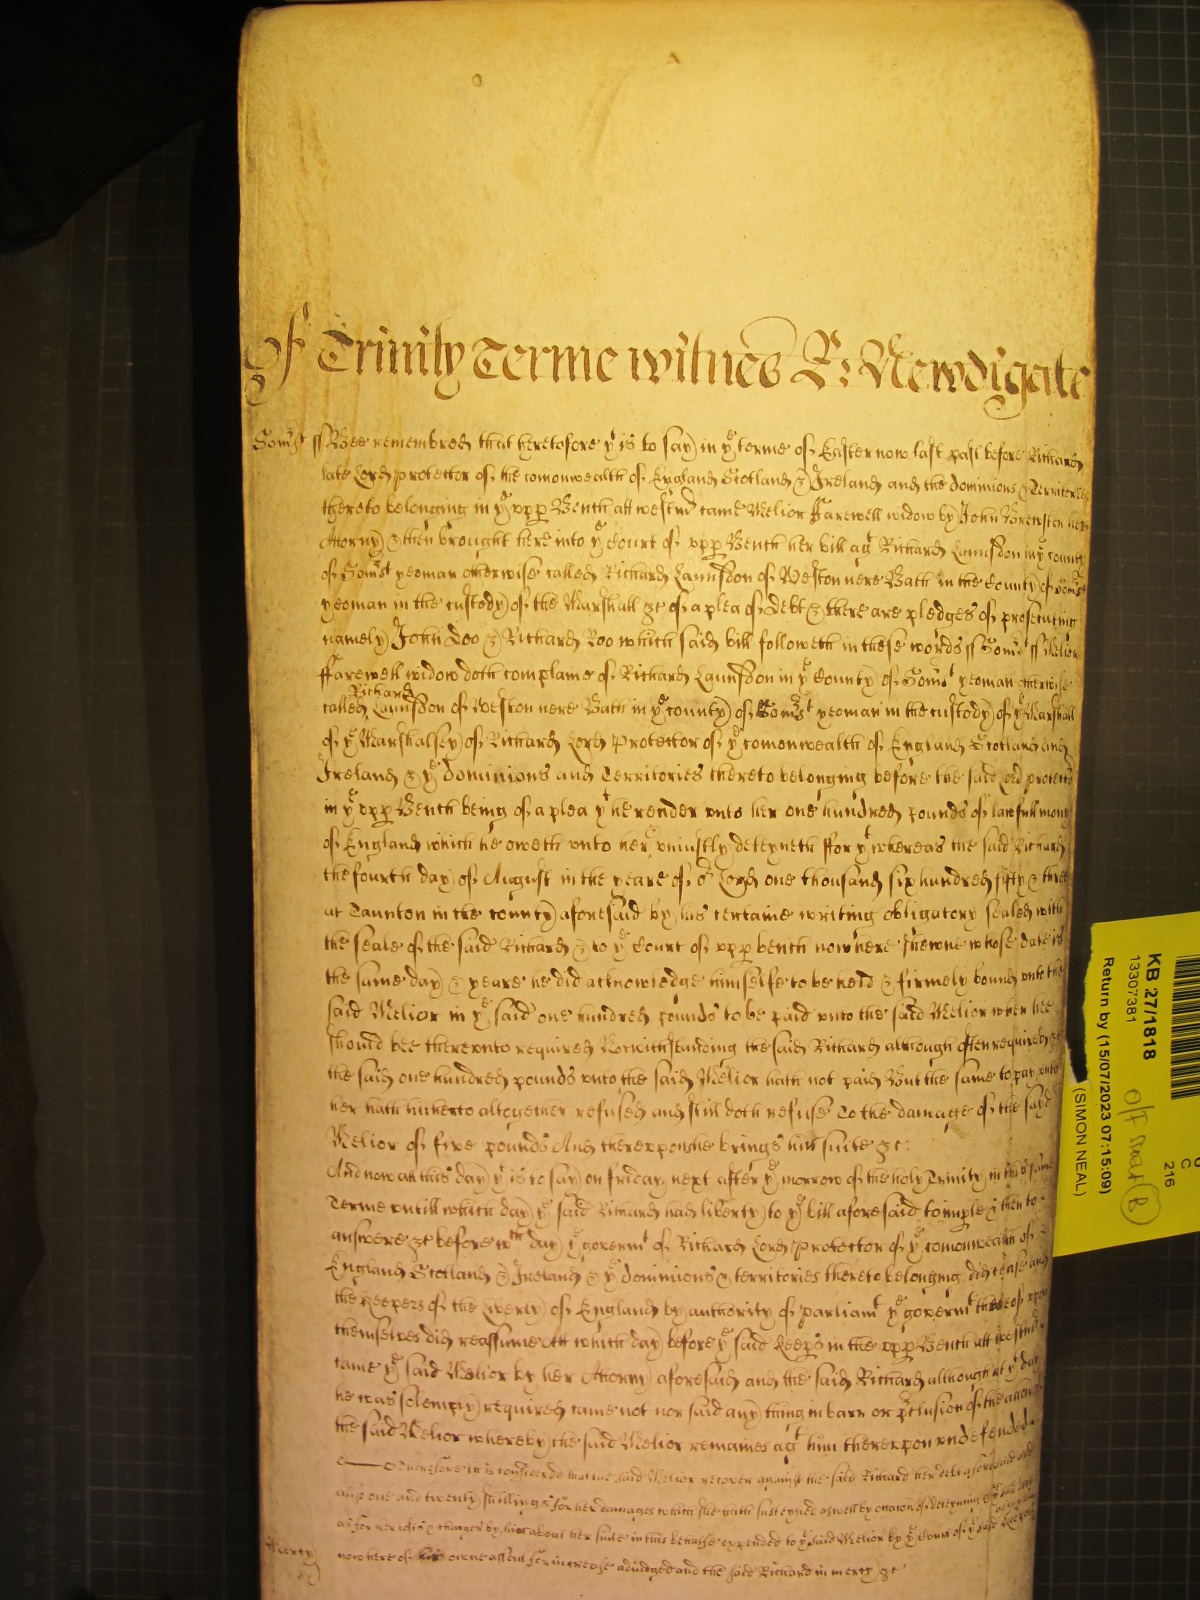 Of Trinity Terme witnes R: Newdigate
Som̃st ss Bee remembred that heretofore yt is to say in ye terme of Easter now last past before Richard
late Lord protector of the comonwealth of England Scotland & Ireland and the dominions & Territories
thereto belonging in ye vpp Bench att westmr came Melior ffarewell widow by John Brewster her
Attorny & then brought here into ye Court of vpp Bench her bill agt Richard Launsdon in ye county
of Som̃st yeoman otherwise called Richard Launsdon of Weston nere Bath in the County of Som̃st
yeoman in the custody of the Marshall &c of a plea of Debt & there are pledges of prosecuting
namely John Doo & Richard Roo which said bill followeth in these words ss Som̃st ss Melior
ffarewell widow doth complaine of Richard Launsdon in ye County of Som̃st yeoman otherwise
called Richard Launsdon of Weston nere Bath in ye county of Som̃st yeoman in the custody of ye Marshall
of ye Marshalsey of Richard Lord Protector of ye comonwealth of England Scotland and
Ireland & ye dominions and Territories thereto belonging before the said Lord protector
in ye vpp Bench being of a plea yt he render vnto her one hundred pounds of lawfull mony
of England which he oweth vnto her & vniustly deteyneth ffor yt whereas the said Richard
the fourth day of August in the yeare of or Lord one thousand six hundred fifty & three
at Taunton in the county aforesaid by his certaine writing obligatory sealed with
the seale of the said Richard & to ye Court of vpp bench now here shewne whose date is
the same day & yeare he did acknowledge himselfe to be held & firmely bound vnto the
said Melior in ye said one hundred pounds to be paid vnto the said Melior when hee
should bee therevnto required Notwithstanding the said Richard although often required &c
the said one hundred pounds vnto the said Melior hath not paid But the same to pay vnto
her hath hitherto altogether refused and still doth refuse To the damage of the said
Melior of five pounds And therevpon she brings suite &c:
And now att this day yt is to say on friday next after ye morrow of the holy Trinity in this same
Terme vntill which day ye said Richard had liberty to ye bill aforesaid to imple & then to
answere &c before wch day ye governmt of Richard Lord Protector of ye comonwealth of
England Scotland & Ireland & ye dominions & territories thereto belonging did cease and
the Keepers of the liberty of England by authority of parliamt ye governmt thereof vpon
themselves did reassume Att which day before ye said Keeps in the vpp Bench att westmr
came ye said Melior by her Attorny aforesaid and the said Richard although at yt day
he was solemply required came not nor said any thing in barr or pclusion of the action
the said Melior whereby the said Melior remaines agt him therevpon vndefended
Therefore it is considered that the said Melior recover against the said Richard her debt aforesaid and
also one and twenty shillings for her damages which she hath susteyned aswell by occation of deteyning of ye said debt
as for her costs & charges by her about her suite in this behalfe expended to ye said Melior by ye Court of ye said Keepers
now here of owne assent for increase adiudged and the said Richard in mercy &c
Mercy
KB 27/1818
13307381
Return by (15/07/2023 07:15:09)
(SIMON NEAL)
216
C